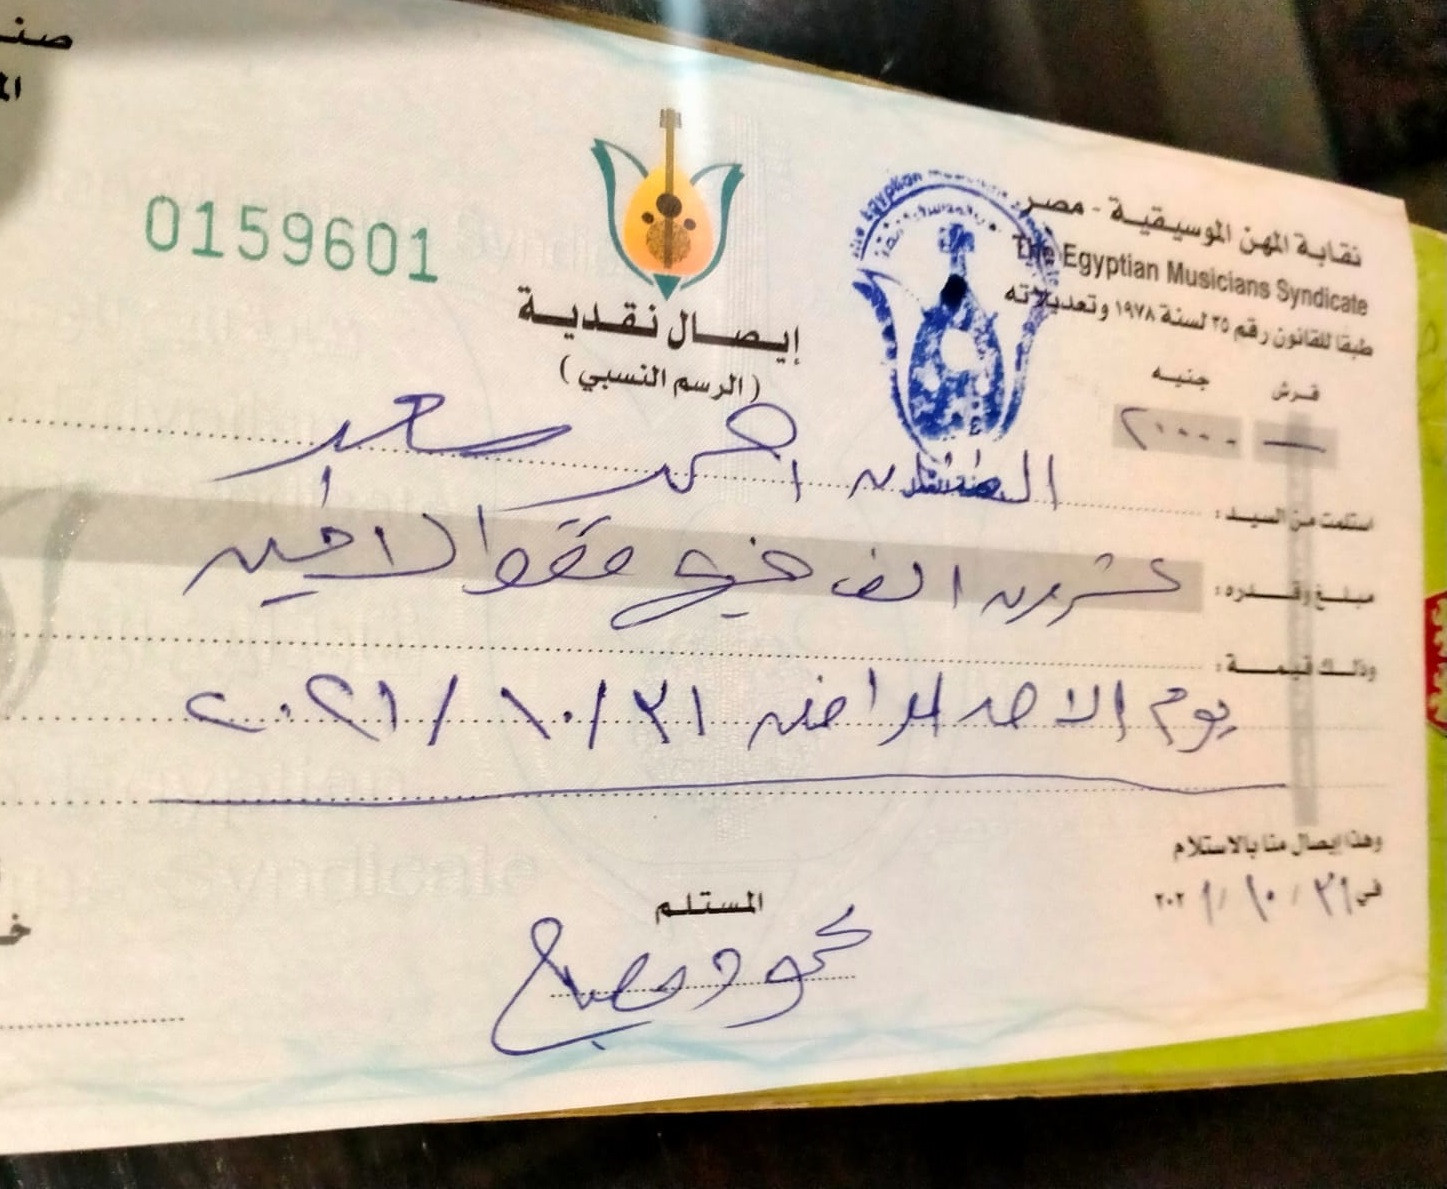 نقابة المهن الموسيقية - مصر
The Egyptian Musicians Syndicate
طبقا للقانون رقم ٣٥ لسنة ١٩٧٨ وتعديلاته
0159601
إيصال نقدية
(الرسم النسبي)
قرش جنيه
— ٢٠٠٠٠
استلمت من السيد : الفنان احمد سعد
مبلغ وقدره : عشرون الف جنيه فقط لا غير
وذلك قيمة :
يوم الاحد الموافق ٣١/١٠/٢٠٢١
وهذا إيصال منا بالاستلام
في ٣١ / ١٠ / ٢٠٢١
المستلم
محمود